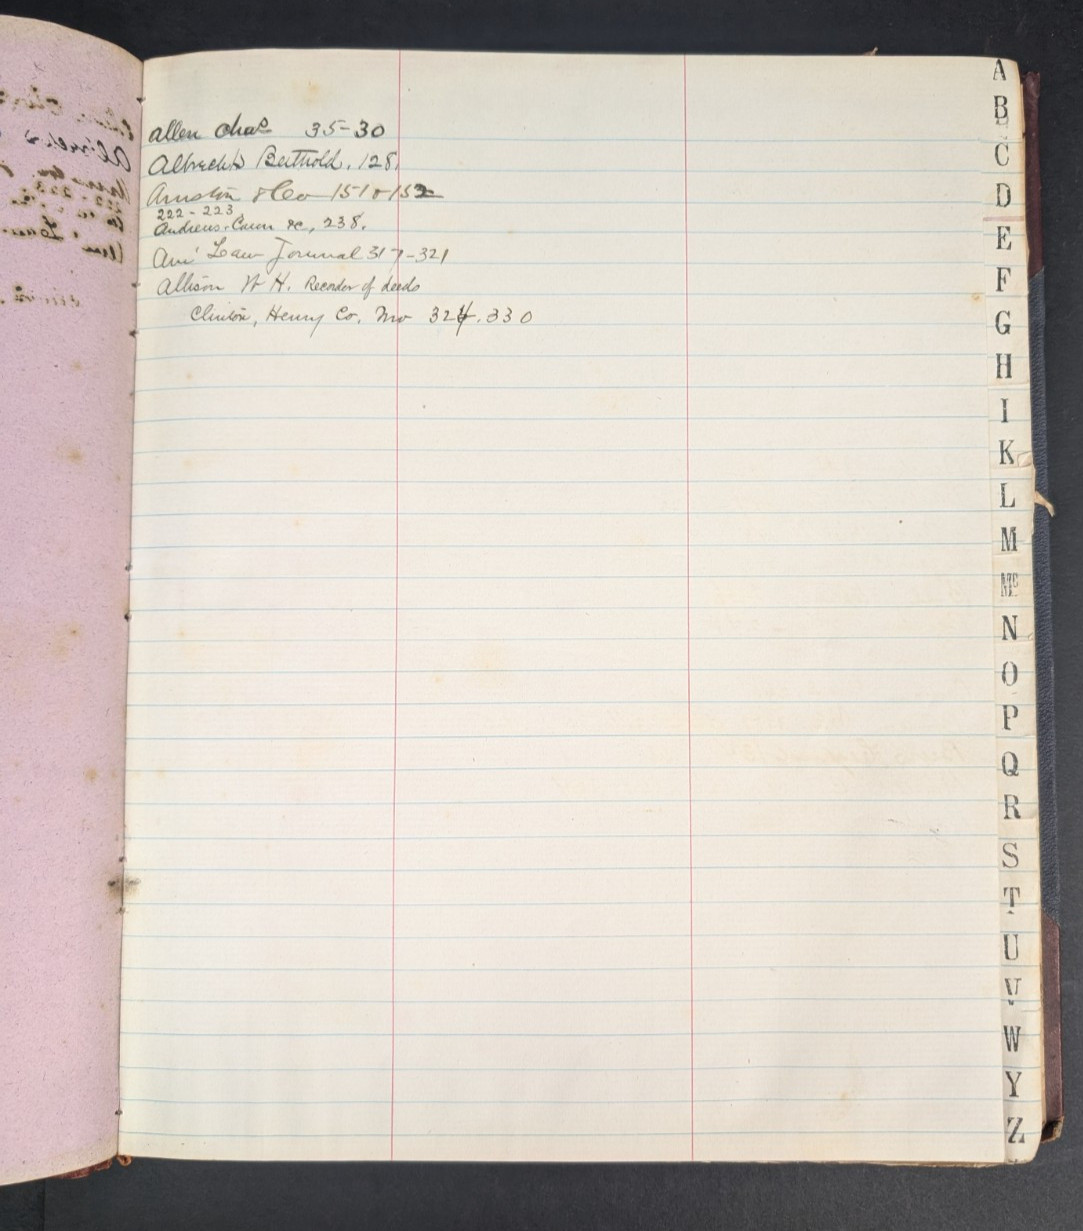 allen Chas 35-30
Albrecht Berthold, 128,
& Co 151 & 152
222 - 223
Andrews, &c, 238.
Am' Law Journal 317-321
Allison W H. Recorder of deeds
Clinton, Henry Co. Mo 324. 330
A
B
C
D
E
F
G
H
I
K
L
M
Mc
N
O
P
Q
R
S
T
U
V
W
Y
Z